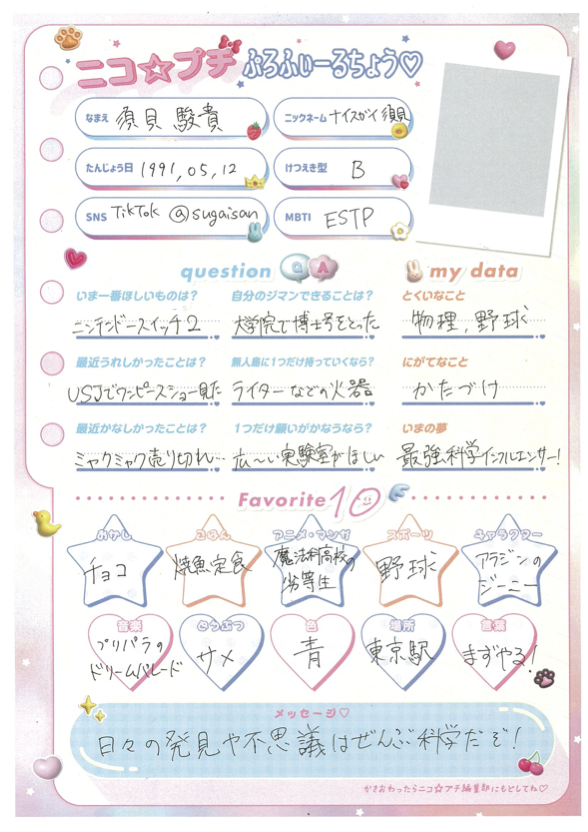 ニコ☆プチ ぷろふぃーるちょう♡
なまえ 須貝 駿貴
ニックネーム ナイスガイ須貝
たんじょう日 1991,05,12
けつえき型 B
SNS TikTok @sugaisan
MBTI ESTP
question Q A
my data
いま一番ほしいものは?
自分のジマンできることは?
とくいなこと
ニンテンドースイッチ2
大学院で博士号をとった
物理,野球
最近うれしかったことは?
無人島に1つだけ持っていくなら?
にがてなこと
USJでワンピースショー見た
ライターなどの火器
かたづけ
最近かなしかったことは?
1つだけ願いがかなうなら?
いまの夢
ミャクミャク売り切れ…
広〜い実験室がほしい
最強科学インフルエンサー!
Favorite 10
おかし
ごはん
アニメ・マンガ
スポーツ
キャラクター
チョコ
焼魚定食
魔法科高校の
劣等生
野球
アラジンの
ジーニー
音楽
どうぶつ
色
場所
言葉
プリパラの
ドリームパレード
サメ
青
東京駅
まずやる!
メッセージ♡
日々の発見や不思議はぜんぶ科学だぞ!
かきおわったらニコ☆プチ編集部にもどしてね♡